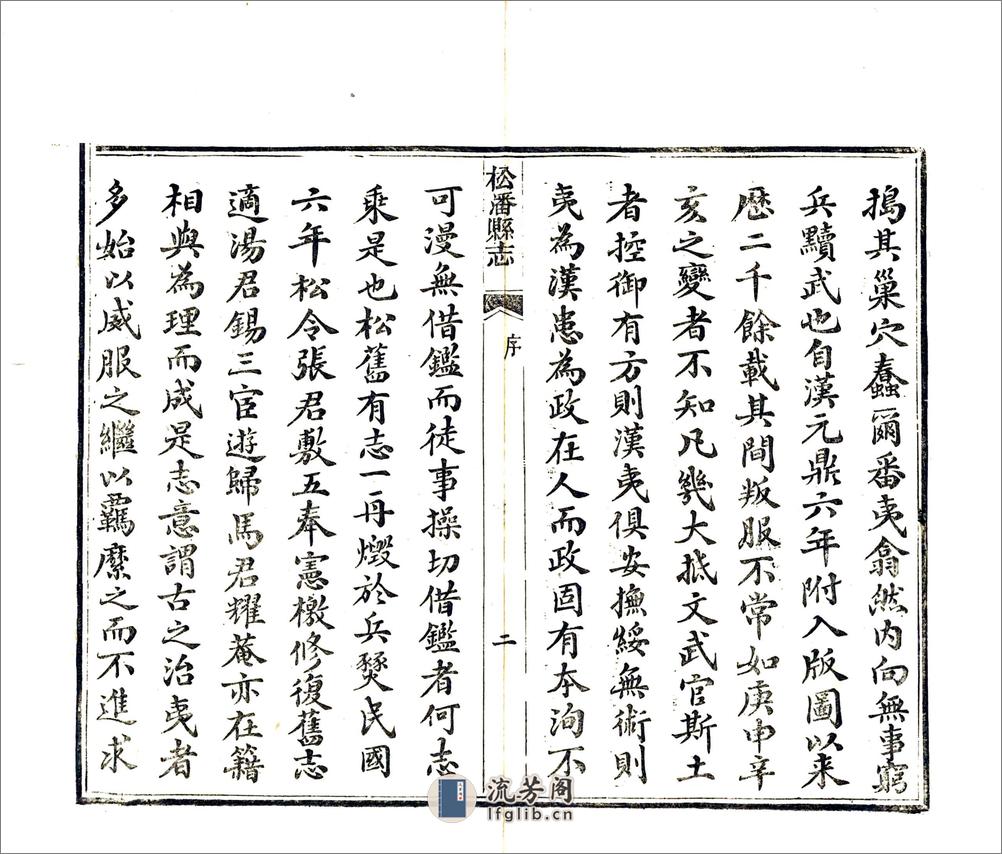 搗其巢穴蠢爾番夷翕然內向無事窮
兵黷武也自漢元鼎六年附入版圖以来
歷二千餘載其間叛服不常如庚申辛
亥之變者不知凡幾大抵文武官斯土
者控御有方則漢夷俱安撫綏無術則
夷為漢患為政在人而政固有本洵不
松潘縣志
序
二
可漫無借鑑而徒事操切借鑑者何志
乘是也松舊有志一再燬於兵燹民國
六年松令張君敷五奉憲檄修復舊志
適湯君錫三宦遊歸馬君耀菴亦在籍
相與為理而成是志意謂古之治夷者
多始以威服之繼以羈縻之而不進求
流芳阁
lfglib.cn